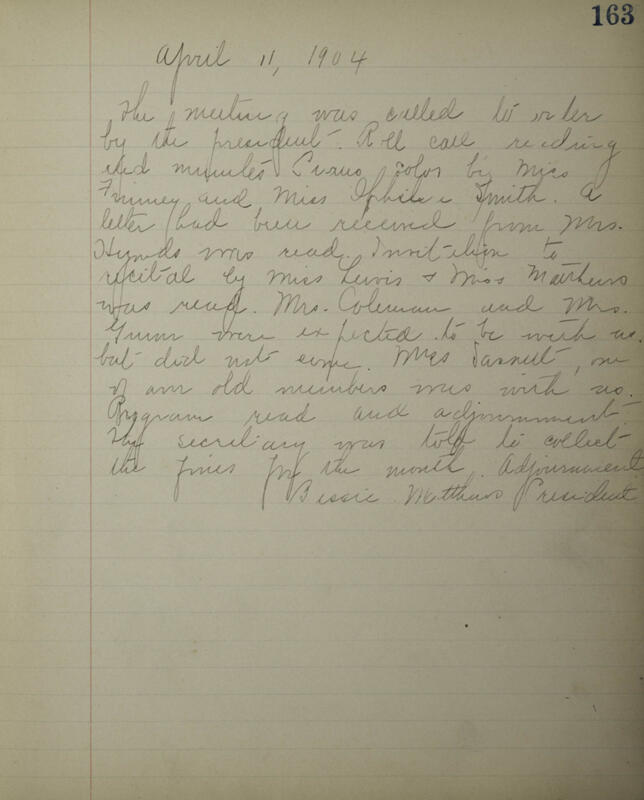 163
April 11, 1904
The meeting was called to order
by the president. Roll call reading
and minutes Piano solos by Miss
Finney and Miss Smith. A
letter had been received from Mrs.
Hynds was read. Invitation to
recital by Miss Lewis & Miss Matthews
was read. Mrs. Coleman and Mrs.
Gunn were expected to be with us.
but did not come. Miss one
of our old members was with us.
Program read and adjournment
The secretary was told to collect
the fines for the month. Adjournment
Bessie Matthews President